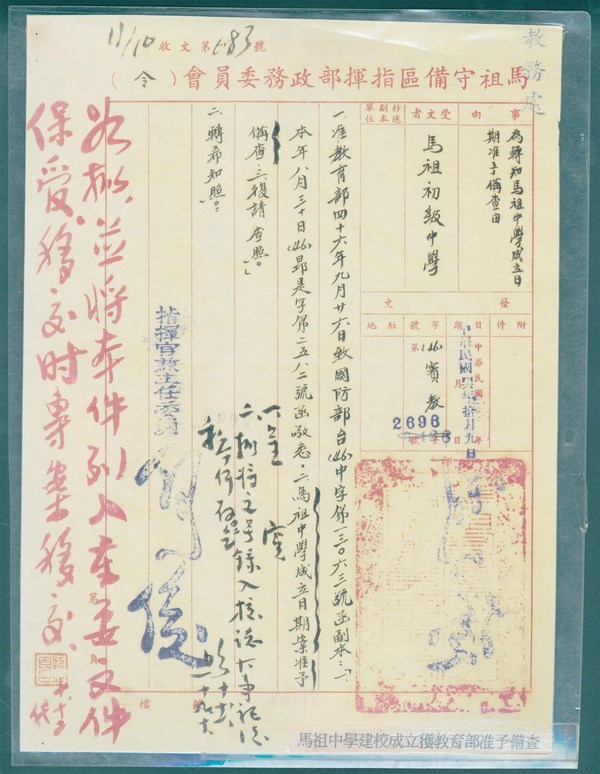 11/10 收文第 號
教務處
馬祖守備區指揮部政務委員會（令）
事由
為轉知馬祖中學成立日
期准予備查由
受文者
馬祖初級中學
抄送副本單位
發文
附件
日期
中華民國 年 月 日
中華民國 年拾月九日
字號
(46)實教
第 號
2696
駐地
一、准教育部四十六年九月廿六日致國防部台(46)中字第一三〇六三號函副本：「一、
本年八月三十日(46)昴是字第二五八二號函敬悉。二、馬祖中學成立日期案准予
備查。三、復請查照。」
二、轉希知照。
指揮官兼主任委員
一、呈
二、擬將文号錄入校誌大事記後
並將本件列入重要文件
保受，移交时專案移交
檔
馬祖中學建校成立獲教育部准予備查